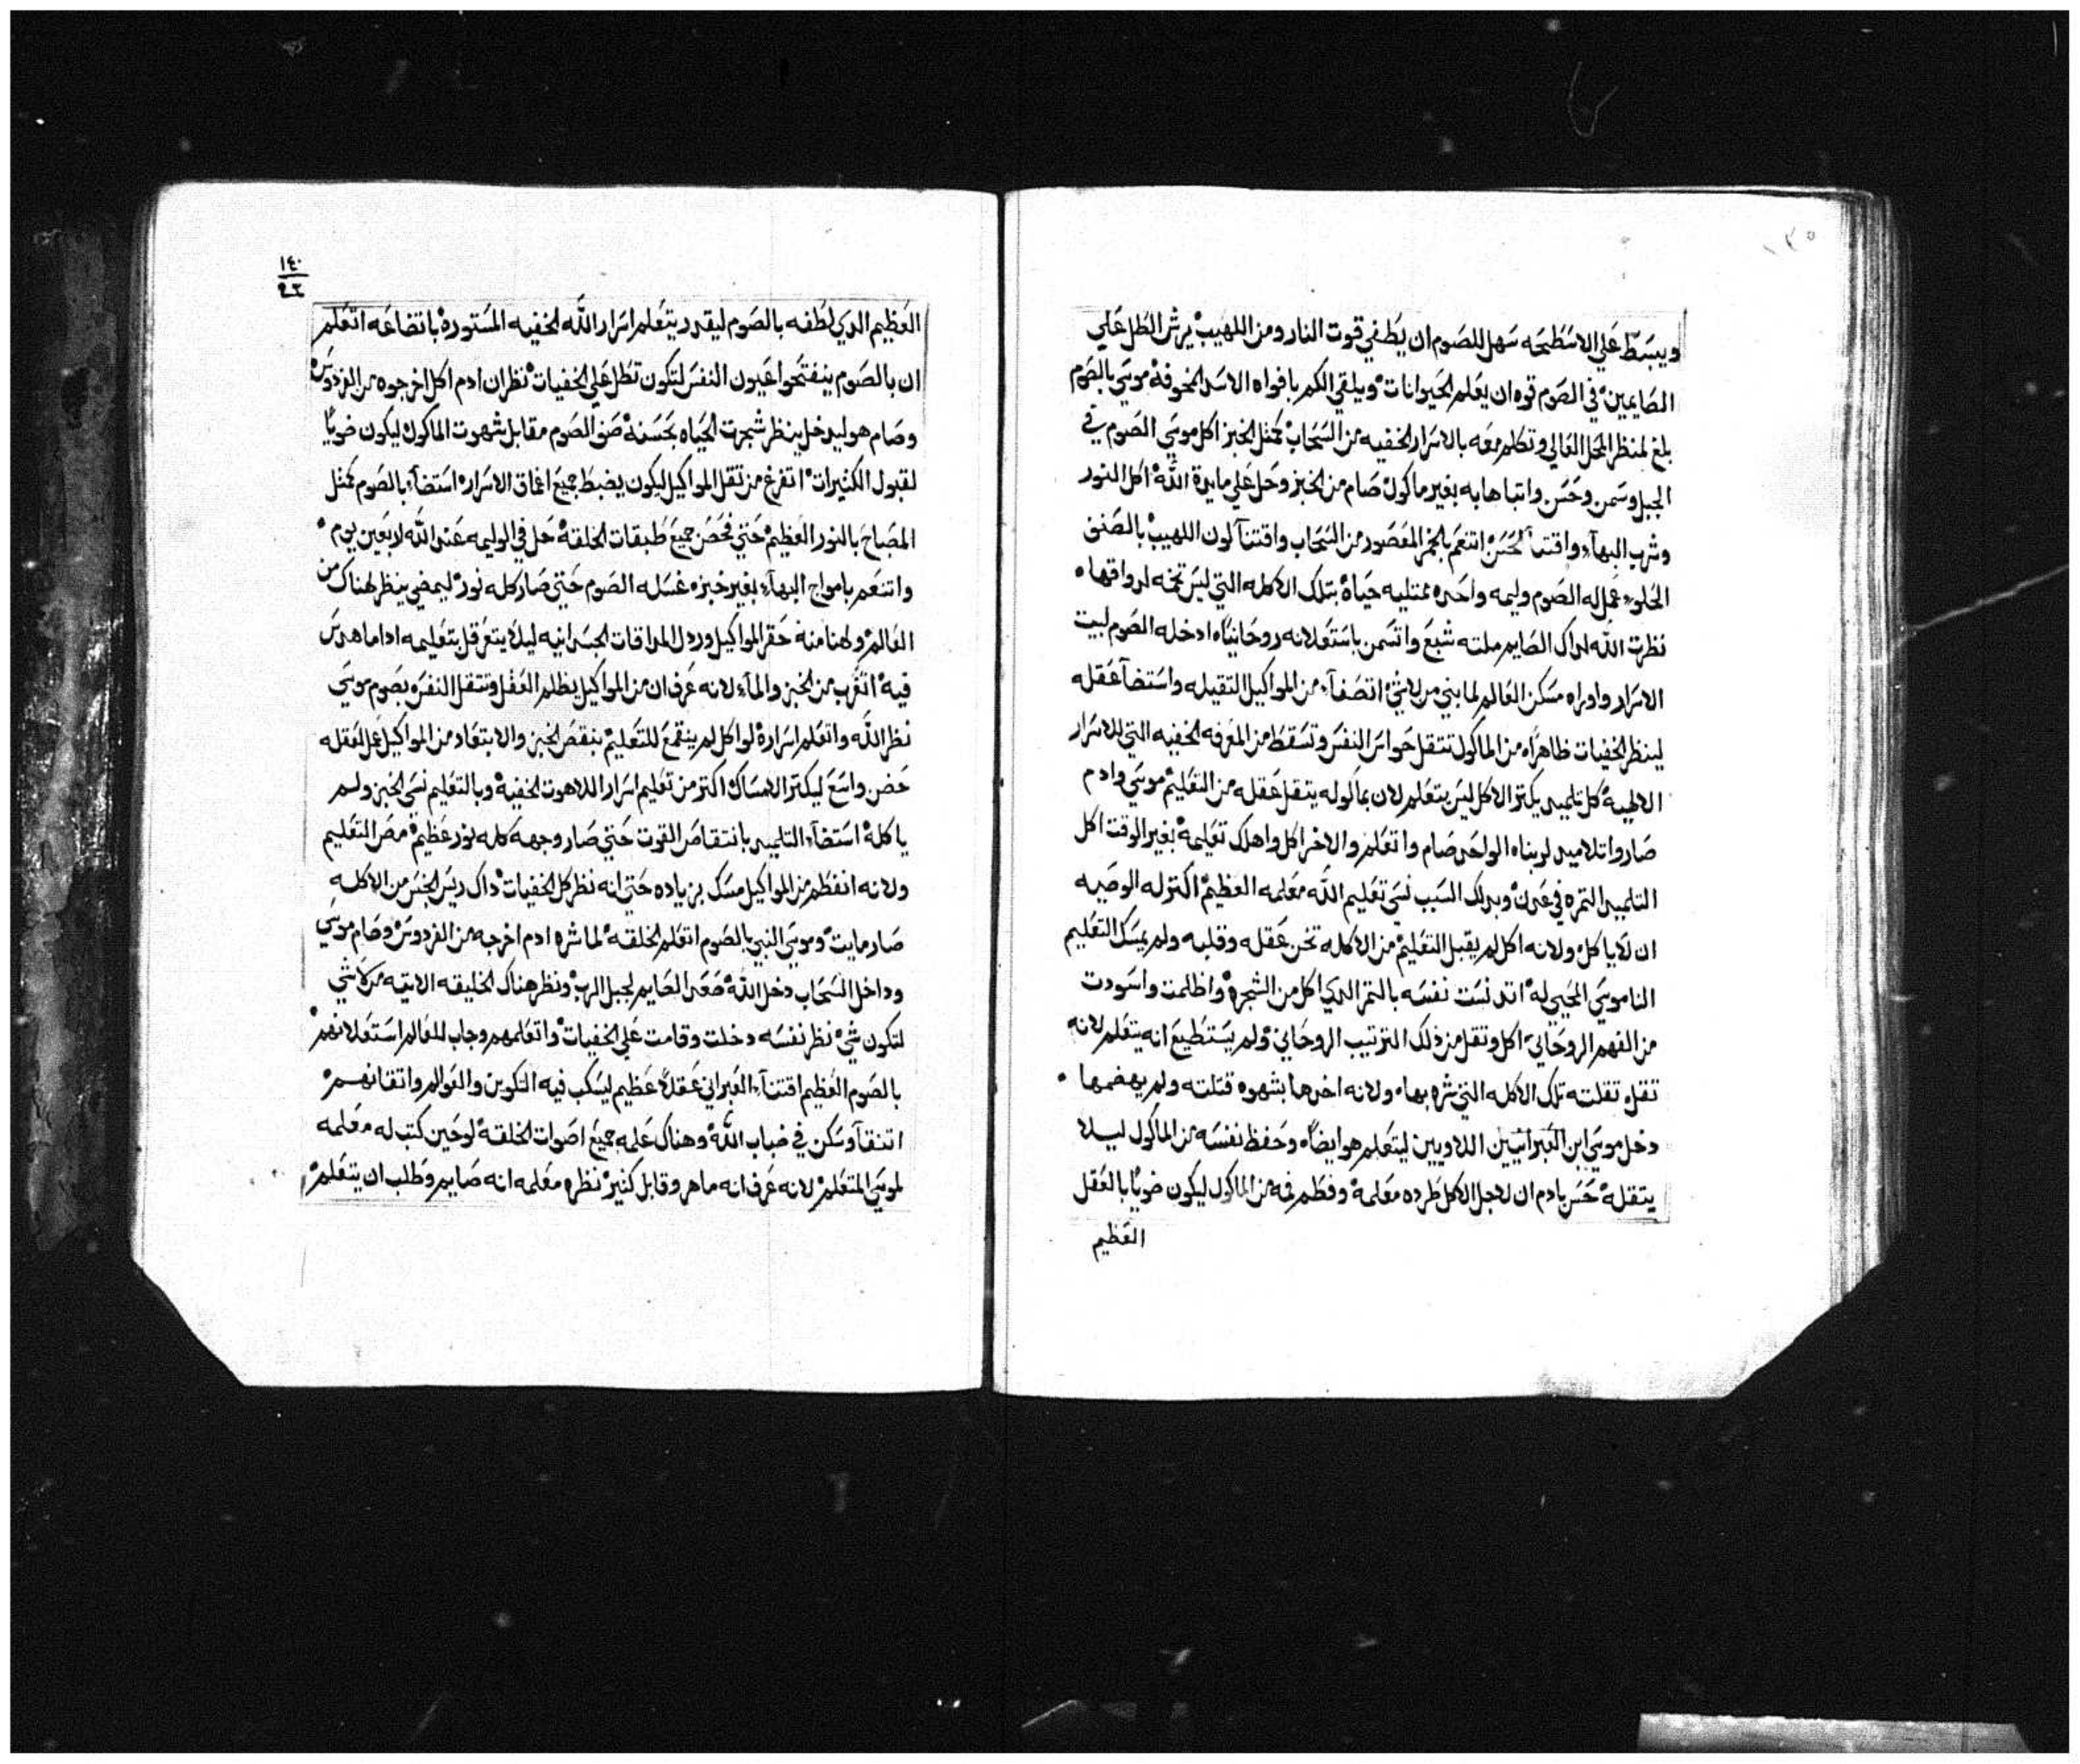 ١٣٥
ويبسط علي الاسطيحه سهل للصوم ان يطفي قوت النار ومن اللهيب يرش الطل علي
الصايمين في الصوم قوه ان يعلم الحيوانات ويلقي الكم بافواه الاسد المخوفه موسي بالصوم
بلغ لمنظر المحل العالي وتكلم معه بالاسرار الخفيه من السحاب كمثل الخبز اكل موسي الصوم في
الجبل وسمن وحسن واتباها به بغير ماكول صام من الخبز وحل علي مايدة الله اكل النور
وشرب البهاء واقتنا الحسن اتنعم بالخمر المعصور من السحاب واقتنا لون اللهيب بالصنق
الحلو عمل له الصوم وليمه واحده ممتليه حياة بتلك الاكله التي ليس تخمه لرواقها
نظرت الله لداك الصايم ملته شبع واتسمن باستعلانه روحانيا ادخله الصوم لبيت
الاسرار واوراه مسكن العالم لما بني من لاشي اتصفا من المواكيل التقيله واستضا عقله
لينظر الخفيات ظاهرا من الماكول تتقل حواس النفس وتسقط من المعرفه الخفيه التي للاسرار
الالهيه كل تلميد يكتر الاكل ليس يتعلم لان بماكوله يتقل عقله من التعليم موسي وادم
صاروا تلاميد لوبناه الواحد صام واتعلم والاخر اكل واهلك تعليمه بغير الوقت اكل
التلميد التمره في عدن وبدلك السبب نسي تعليم الله معلمه العظيم اكتر له الوصيه
ان لا ياكل ولانه اكل لم يقبل التعليم من الاكله تخن عقله وقلبه ولم يمسك التعليم
الناموسي المحيي له اتدنست نفسه بالتمر الدي اكل من الشجره واظلمت واسودت
من الفهم الروحاني اكل وتقل من ذلك الترتيب الروحاني ولم يستطيع انه يتعلم لانه
تقل تقلته تلك الاكله التي شره بها ولانه اخدها بشهوه قتلته ولم يهضمها
دخل موسي ابن العبرانيين اللاويين ليتعلم هو ايضا وحفظ نفسه من الماكول ليلا
يتقله حس بادم ان لاجل الاكل طرده معلمه وفطم فمه من الماكول ليكون ضويا بالعقل
العظيم
١٤٠
٩٢
العظيم الدي لطفه بالصوم ليقدر يتعلم اسرار الله الخفيه المستوره باتضاعه اتعلم
ان بالصوم ينفتحوا عيون النفس لتكون تطل علي الخفيات نظر ان ادم اكل اخرجوه من الفردوس
وصام هو ليدخل ينظر شجرت الحياه بحسنه صف الصوم مقابل شهوت الماكول ليكون ضويا
لقبول الكثيرات اتفرغ من تقل المواكيل ليكون يضبط جميع اعماق الاسرار استضاء بالصوم كمثل
المصباح بالنور العظيم حتي فحص جميع طبقات الخلقه حل في الوليمه عند الله لاربعين يوم
واتنعم بامواج البهاء بغير خبز غسله الصوم حتي صار كله نور ليمضي ينظر لهناك من
العالم ولهنا منه حقر المواكيل وردل المداقات الجسدانيه ليلا يتعرقل بتعليمه اداما هدس
فيه اتغرب من الخبز والماء لانه عرف ان من المواكيل يظلم العقل وتتقل النفس بصوم موسي
نظر الله واتعلم اسراره لو اكل لم ينقمع للتعليم بنقص الخبز والابتعاد من المواكيل عمل لعقله
حضن واسع ليكتر الامساك اكتر من تعليم اسرار اللاهوت الخفيه وبالتعليم نسي الخبز ولم
ياكله استضاء التلميد بانتقاص القوت حتي صار وجهه كله نور عظيم مص التعليم
ولانه انفطم من المواكيل مسك بزياده حتي انه نظر كل الخفيات داك ريس الجنس من الاكله
صار مايت وموسي النبي بالصوم اتعلم الخلقه لما شره ادم اخرجه من الفردوس وصام موسي
وداخل السحاب دخل الله صعد الصايم لجبل الرب ونظر هناك الخليقه الاتيه من لاشي
لتكون شي نظر نفسه دخلت وقامت علي الخفيات واتعلمهم وجاب للعالم استعلانهم
بالصوم العظيم اقتناء العبراني عقلا عظيم ليسكب فيه التكوين والعوالم واتقانهم
اتنقا وسكن في ضباب الله وهناك علمه جميع اصوات الخلقه لوحين كتب له معلمه
لموسي المتعلم لانه عرف انه ماهر وقابل كثير نظره معلمه انه صايم وطلب ان يتعلم